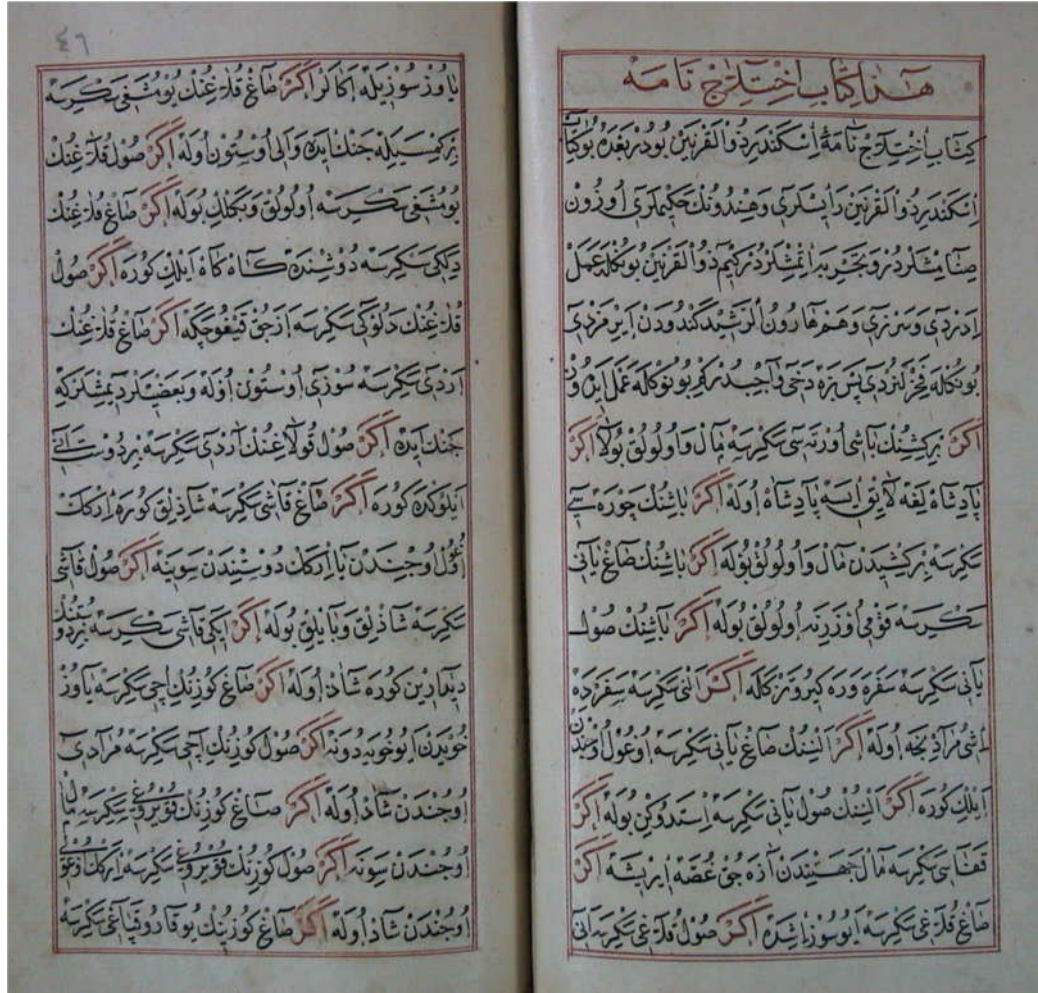 هذا كتاب اختلاج نامه
كتاب اختلاج نامۀ اسكندر ذو القرنين بودر بعده بو كتاب
اسكندر ذو القرنين دانشلرى و هندونك حكيملرى اوزون
صنامشلردر و تجربه اتمشلردر كيم ذو القرنين بونكله عمل
ايدردى و سزدى و هم هارون الرشيد كندودن ايرمزدى
بونكله فخرلنردى پس بزه دخى واجبدر كم بونوكله عمل ايدرون
اكر بر كشينك باشى اورته سى سكرسه مال و اولولق بولا اكر
پادشاهلغه لايق ايسه پادشاه اوله اكر باشنك چوره سى
سكرسه بر كشيدن مال و اولولق بوله اكر باشنك صاغ يانى
سكرسه قومى اوزرنه اولولق بوله اكر باشنك صول
يانى سكرسه سفره وره كيرو تز كله اكر النى سكرسه سفرده
ايشى مرادنجه اوله اكر النينك صاغ يانى سكرسه اوغول اوجندن
ايلك كوره اكر النينك صول يانى سكرسه استدوكن بوله اكر
قفاسى سكرسه مال جهتيندن آزه جق غصه ايريشه اكر
صاغ قلاغى سكرسه ايو سوز اشده اكر صول قلاغى سكرسه انى
٤٦
ياوز سوزيله اكالر اكر صاغ قلاغنك يومشغى سكرسه
بر كمسيله جنك ايده و الى اوستون اوله اكر صول قلاغنك
يومشغى سكرسه اولولق و بكلك بوله اكر صاغ قلاغنك
دلكى سكرسه دوشنده كاه كاه ايلك كوره اكر صول
قلاغنك دلوكى سكرسه ازجق قيغو چكه اكر صاغ قلاغنك
اردى سكرسه سوزى اوستون اوله و بعضيلر ديمشلر كه
جنك ايده اكر صول قولاغنك آردى سكرسه بر دوستانى
ايلوكده كوره اكر صاغ قاشى سكرسه شاذلق كوره اركك
اوغول اوجندن يا اركك دوستندن سوينه اكر صول قاشى
سكرسه شاذلق و بايلق بوله اكر ايكى قاشى سكرسه بر دوستنك
ديدارين كوره شاد اوله اكر صاغ كوزينك ايچى سكرسه ياوز
خويدن ايو خويه دونه اكر صول كوزينك ايچى سكرسه مرادى
اوجندن شاد اوله اكر صاغ كوزينك قويروغى سكرسه مال
اوجندن سونه اكر صول كوزينك قويروغى سكرسه اركك اوغول
اوجندن شاد اوله اكر صاغ كوزينك يوقارو قپاغى سكرسه